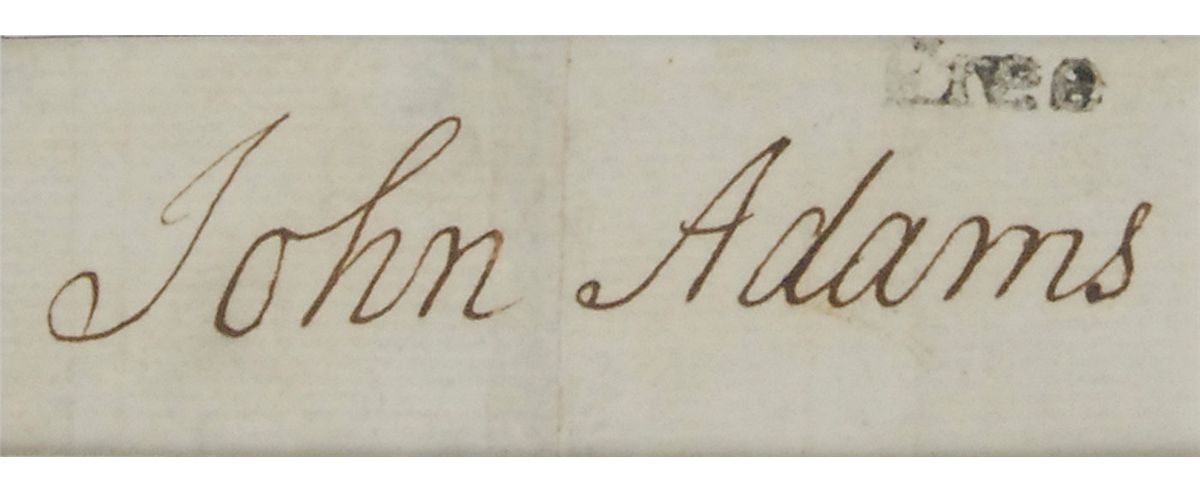 Free
John Adams